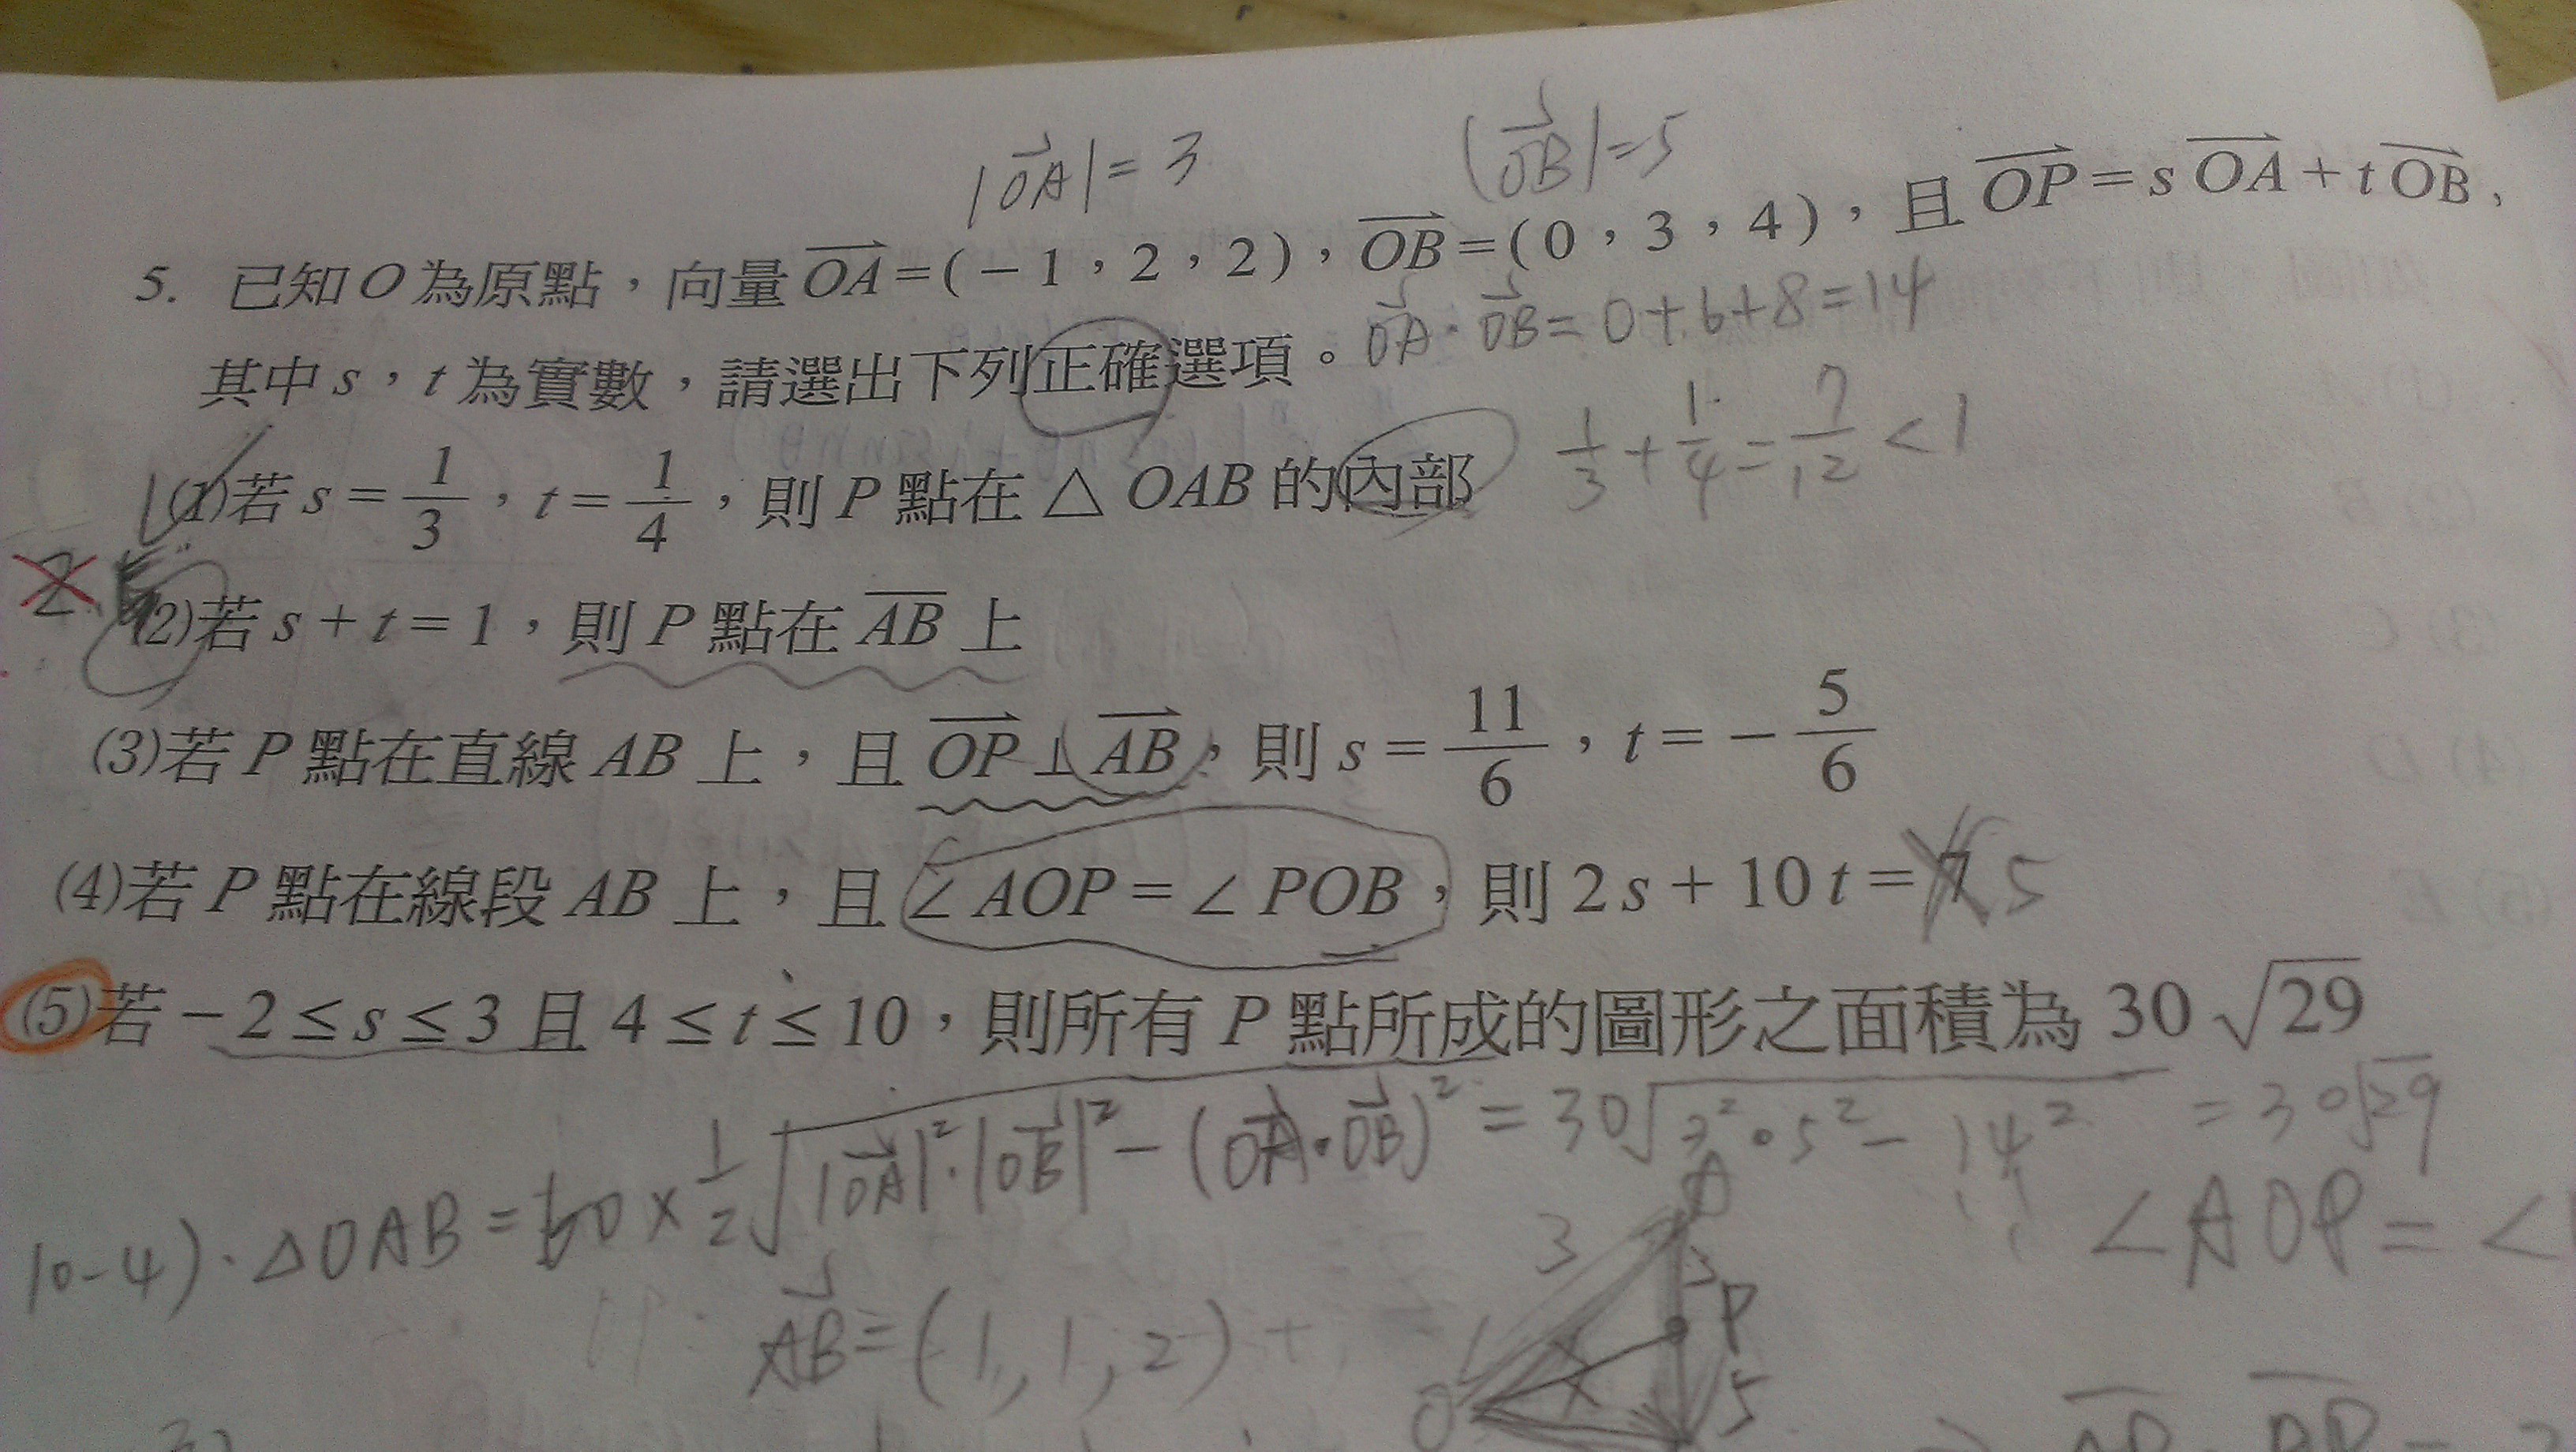 |OA|=3 |OB|=5
5. 已知O為原點，向量OA=(-1，2，2)，OB=(0，3，4)，且OP=sOA+tOB，
OA·OB=0+6+8=14
其中s，t為實數，請選出下列正確選項。
(1)若s=1/3，t=1/4，則P點在△OAB的內部
1/3+1/4=7/12<1
2
(2)若s+t=1，則P點在AB上
(3)若P點在直線AB上，且OP⊥AB，則s=11/6，t=-5/6
(4)若P點在線段AB上，且∠AOP=∠POB，則2s+10t=7 5
(5)若-2≤s≤3且4≤t≤10，則所有P點所成的圖形之面積為30√29
10-4)·△OAB=60×1/2√|OA|²·|OB|²-(OA·OB)²=30√3²·5²-14²=30√29
A
3 3 ∠AOP=∠
P
AB=(1,1,2)
O 5